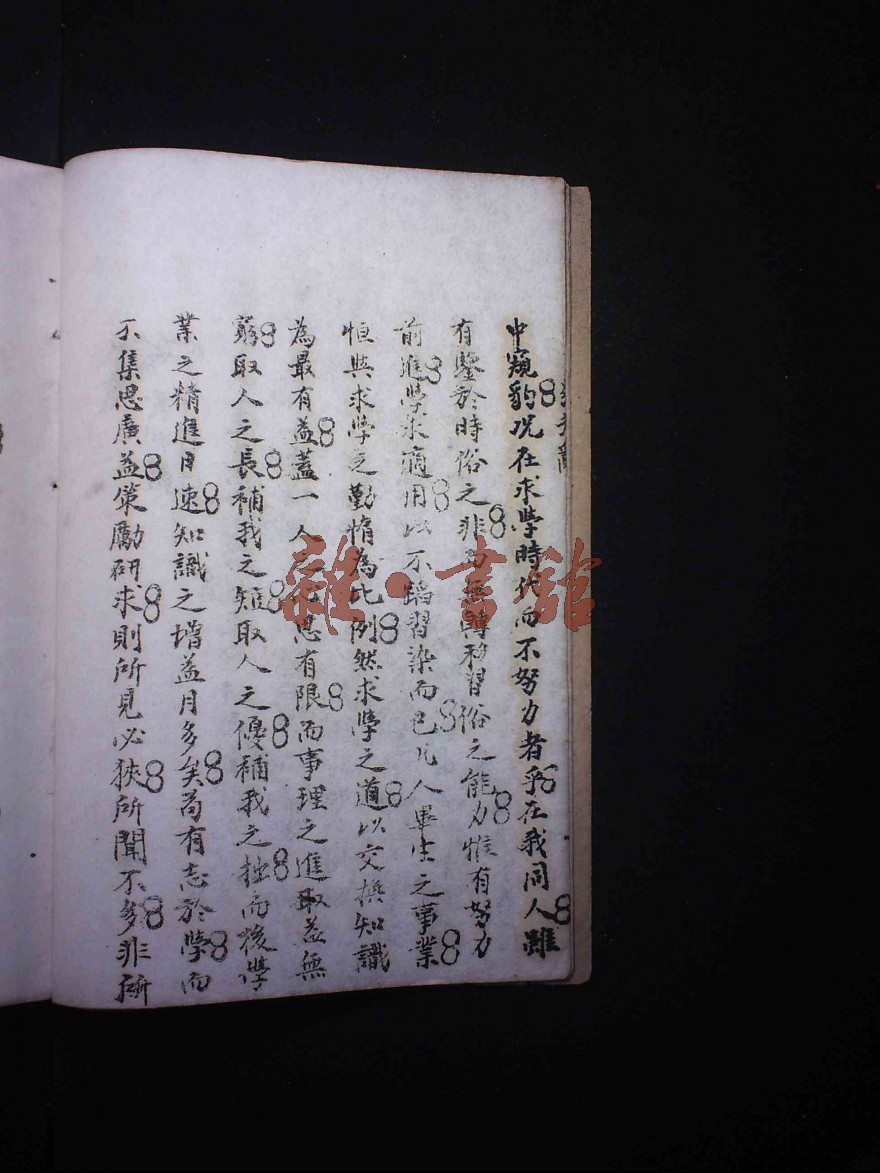 中窺豹况在求學時代而不努力者乎在我同人雖
有鑒於時俗之非無轉移習俗之能力惟有努力
前進學求適用以不蹈習染而已凡人畢生之事業
恒與求學之勤惰為比例然求學之道以交換知識
為最有益蓋一人之心思有限而事理之進取益無
窮取人之長補我之短取人之優補我之拙而後學
業之精進日速知識之增益月多矣苟有志於學而
不集思廣益策勵研求則所見必狹所聞不多非所
雜·書館